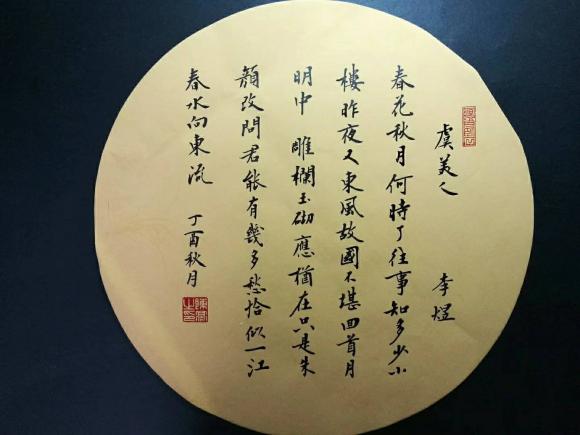 虞美人 李煜
春花秋月何時了往事知多少小
樓昨夜又東風故國不堪回首月
明中 雕欄玉砌應猶在只是朱
顏改問君能有幾多愁恰似一江
春水向東流 丁酉秋月